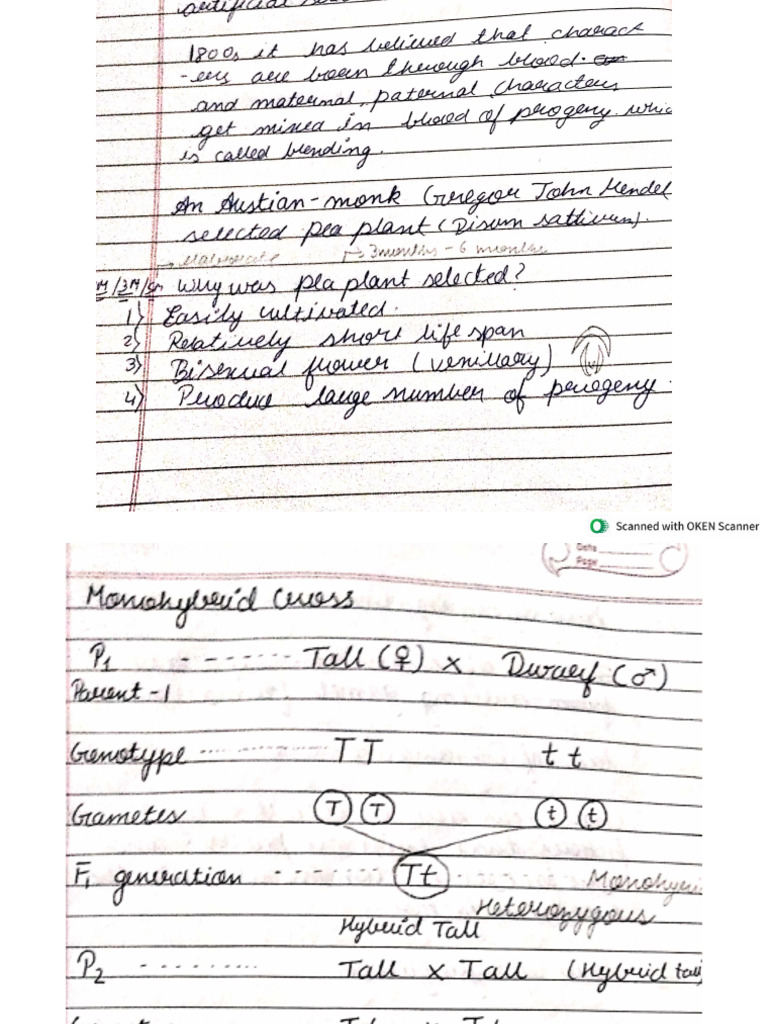 1800s it has believed that charack
-ers are been through blood.
and maternal, paternal characters
get mixed in blood of progeny. whic
is called blending.
An Austian-monk Gregor John Mendel
selected pea plant (Disum sattivum).
3months - 6 months
why was pea plant selected?
1) Easily cultivated.
2) Relatively short life span
3) Bisexual flower (venillary)
4) Produce large number of perogeny.
Scanned with OKEN Scanner
Date
Page
Monohybrid Cross
P1 ------- Tall (♀) x Dwarf (♂)
Parent -1
Genotype ------- TT tt
Gametes T T t t
F1 generation ------- Tt Monohyri
Heterozygous
Hybrid Tall
P2 ------- Tall x Tall (Hybrid tall)